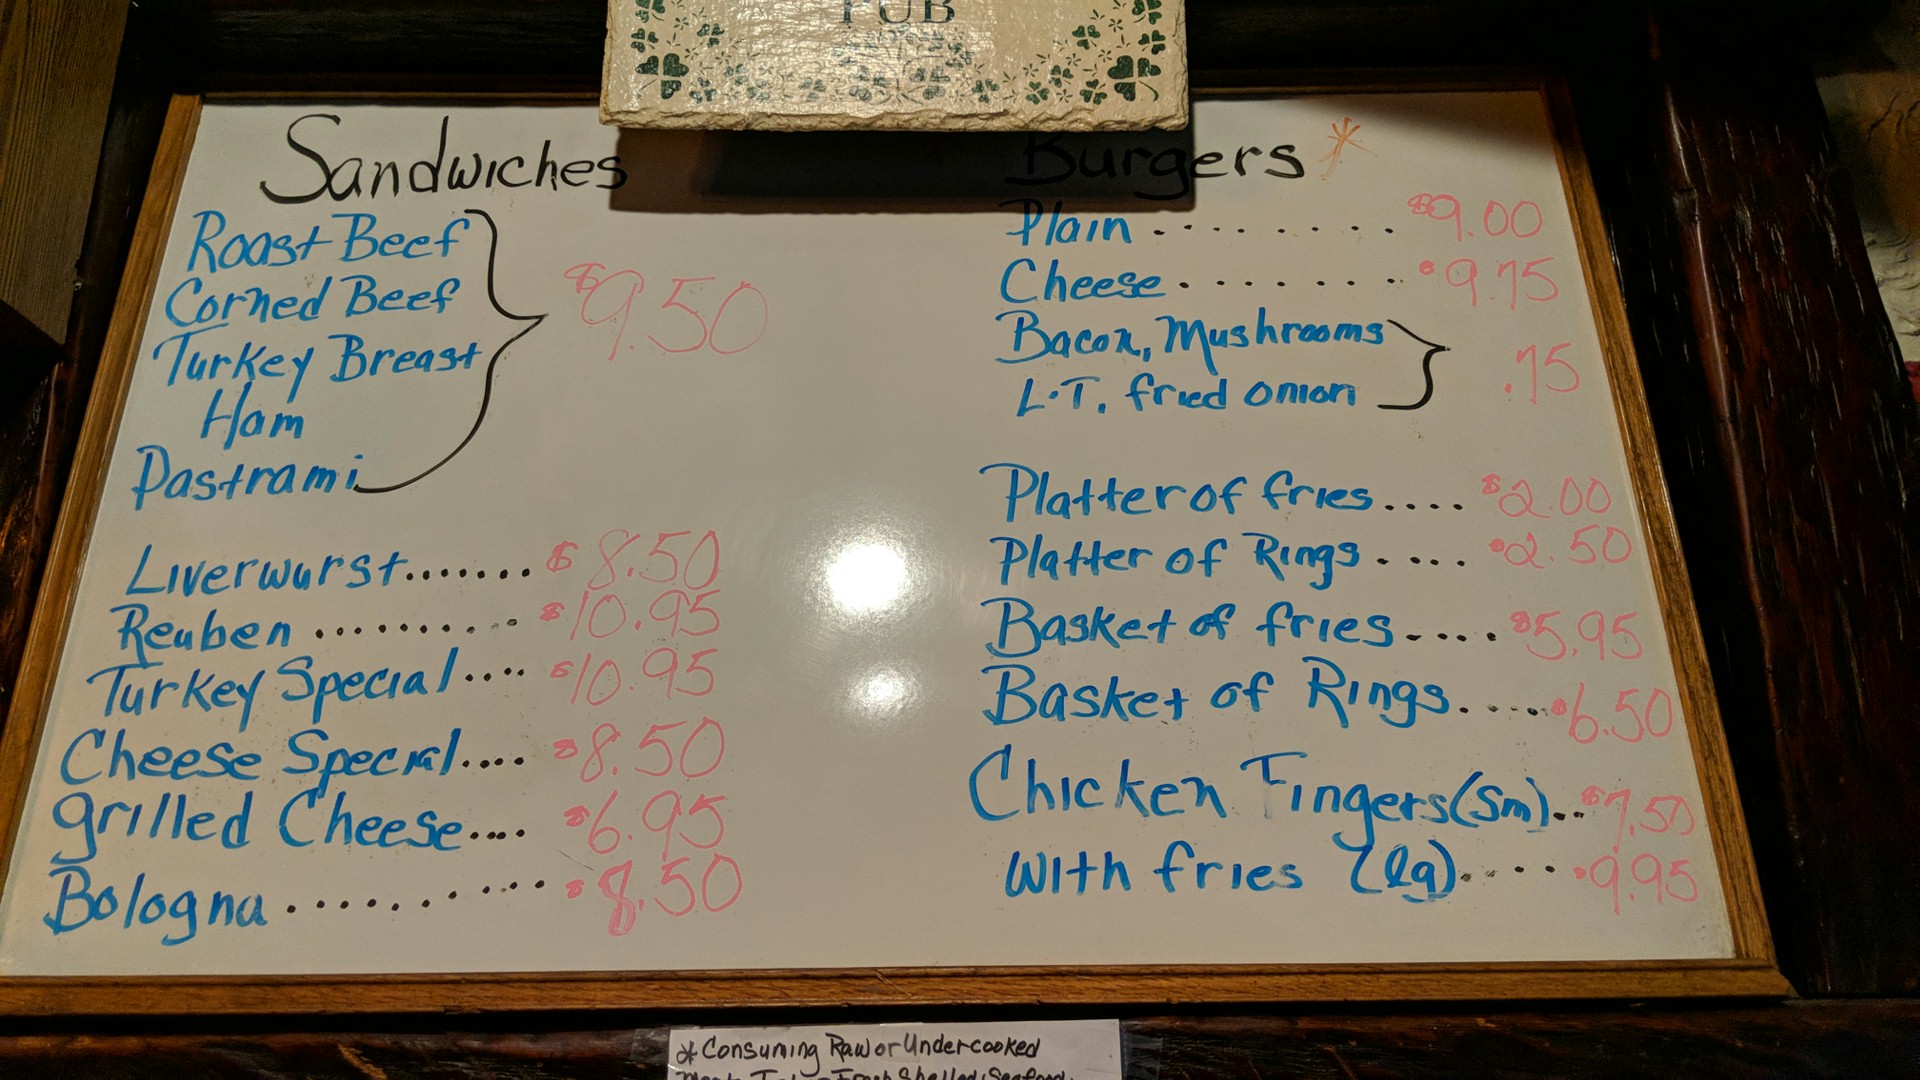 PUB
Sandwiches
Roast Beef
Corned Beef
Turkey Breast
Ham
Pastrami
$9.50
Liverwurst....... $8.50
Reuben ......... $10.95
Turkey Special.... $10.95
Cheese Special.... $8.50
grilled Cheese.... $6.95
Bologna .......... $8.50
Burgers *
Plain ........ $9.00
Cheese ........ $9.75
Bacon, Mushrooms
L.T. fried onion
.75
Platter of fries.... $2.00
Platter of Rings.... $2.50
Basket of fries.... $5.95
Basket of Rings..... $6.50
Chicken Fingers (sm)... $7.50
with fries (lg)..... $9.95
* Consuming Raw or Undercooked